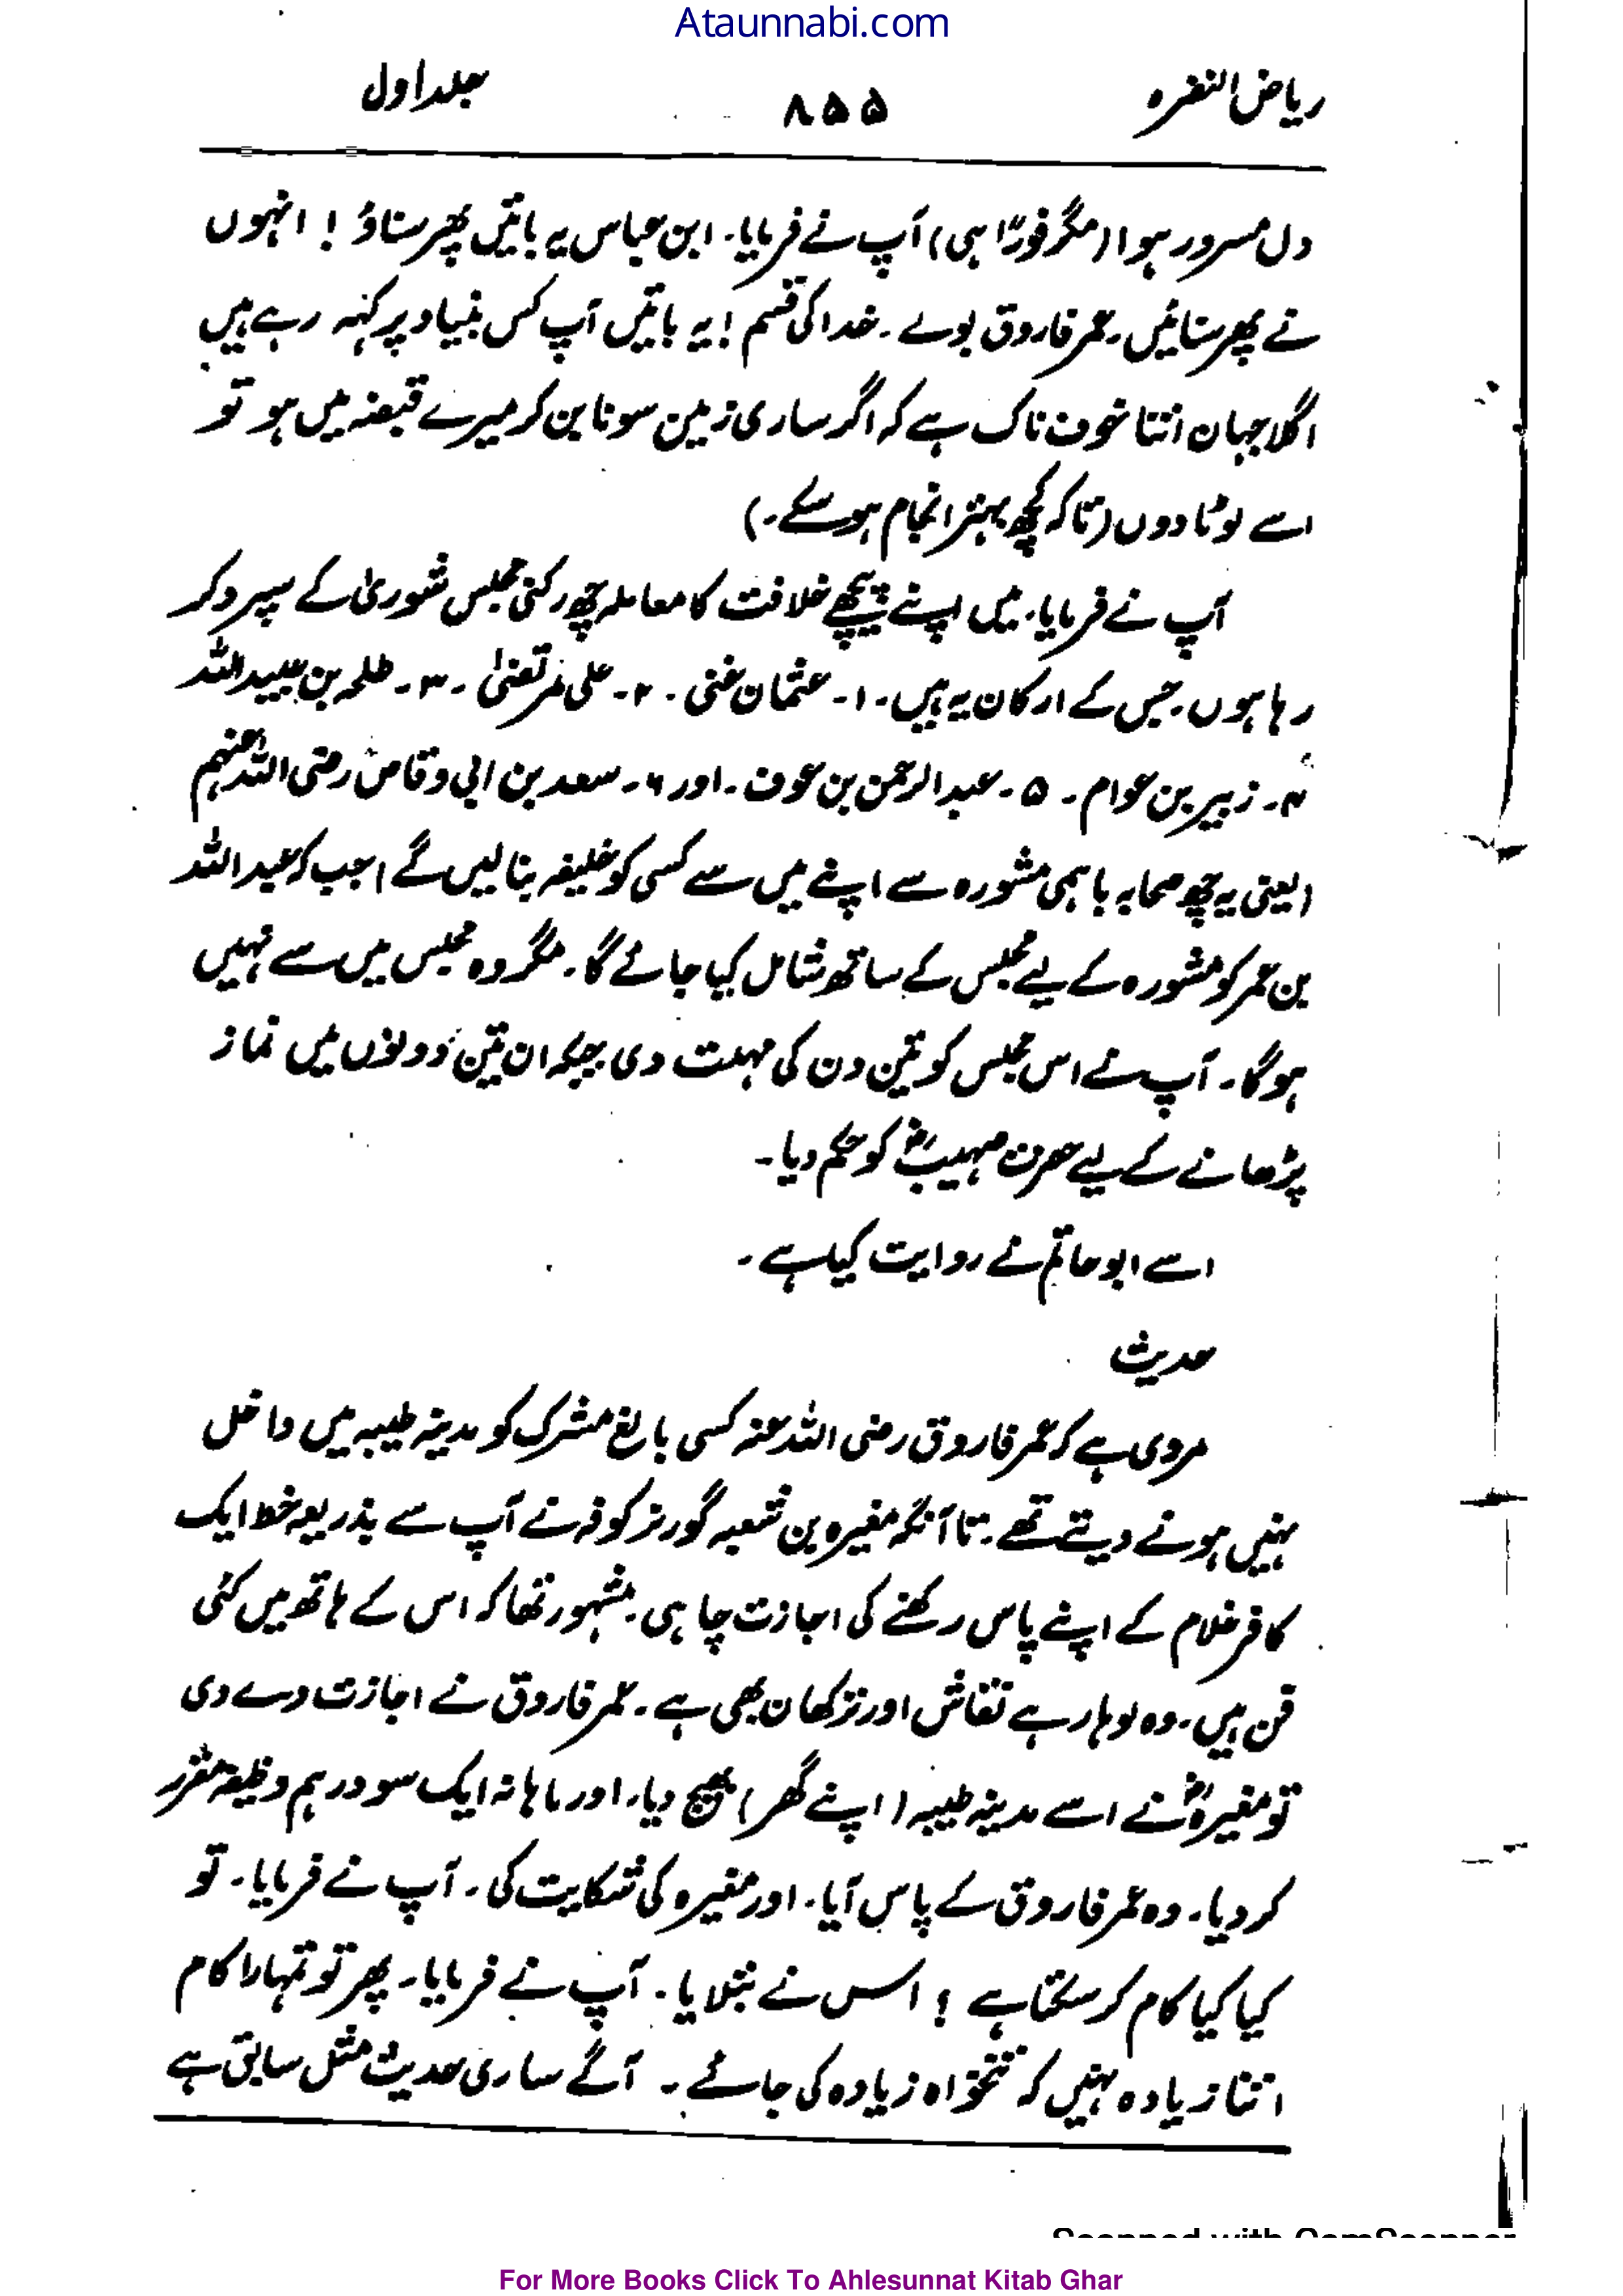 Ataunnabi.com
ریاض النضرہ ۸۵۵ جلد اول
دل مسرور ہوا (مگر فورًا ہی) آپ نے فرمایا۔ ابن عباس یہ باتیں پھر سناؤ! انہوں
نے پھر سنائیں۔ عمر فاروق بولے۔ خدا کی قسم! یہ باتیں آپ کس بنیاد پر کہہ رہے ہیں
اگلا جہان اتنا خوف ناک ہے کہ اگر ساری زمین سونا بن کر میرے قبضہ میں ہو تو
اسے لوٹا دوں (تاکہ کچھ بہتر انجام ہو سکے۔)
آپ نے فرمایا، میں اپنے پیچھے خلافت کا معاملہ چھ رکنی مجلس شوریٰ کے سپرد کر
رہا ہوں۔ جس کے ارکان یہ ہیں۔ ۱۔ عثمان غنی۔ ۲۔ علی مرتضیٰ۔ ۳۔ طلحہ بن عبید اللہ
۴۔ زبیر بن عوام۔ ۵۔ عبدالرحمن بن عوف۔ اور ۶۔ سعد بن ابی وقاص رضی اللہ عنہم
(یعنی یہ چھ صحابہ باہمی مشورہ سے اپنے میں سے کسی کو خلیفہ بنا لیں گے) جب کہ عبد اللہ
بن عمر کو مشورہ کے لیے مجلس کے ساتھ شامل کیا جائے گا۔ مگر وہ مجلس میں سے نہیں
ہوگا۔ آپ نے اس مجلس کو تین دن کی مہلت دی جبکہ ان تین دونوں میں نماز
پڑھانے کے لیے صرف صہیبؓ کو حکم دیا۔
اسے ابو حاتم نے روایت کیا ہے۔
حدیث
مروی ہے کہ عمر فاروق رضی اللہ عنہ کسی بالغ مشرک کو مدینہ طیبہ میں داخل
نہیں ہونے دیتے تھے۔ تا آنکہ مغیرہ بن شعبہ گورنر کوفہ نے آپ سے بذریعہ خط ایک
کافر غلام کے اپنے پاس رکھنے کی اجازت چاہی۔ مشہور تھا کہ اس کے ہاتھ میں کئی
فن ہیں۔ وہ لوہار ہے نقاش اور ترکھان بھی ہے۔ عمر فاروق نے اجازت دے دی
تو مغیرہؓ نے اسے مدینہ طیبہ (اپنے گھر) بھیج دیا۔ اور ماہانہ ایک سو درہم وظیفہ مقرر
کر دیا۔ وہ عمر فاروق کے پاس آیا۔ اور مغیرہ کی شکایت کی۔ آپ نے فرمایا۔ تو
کیا کیا کام کر سکتا ہے؟ اس نے بتلایا۔ آپ نے فرمایا۔ پھر تو تمہارا کام
اتنا زیادہ نہیں کہ تنخواہ زیادہ کی جائے۔ آگے ساری حدیث مثل سابق ہے
Scanned with CamScanner
For More Books Click To Ahlesunnat Kitab Ghar